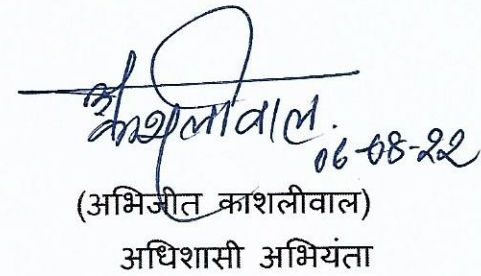 काशलीवाल.
06-08-22
(अभिजीत काशलीवाल)
अधिशासी अभियंता